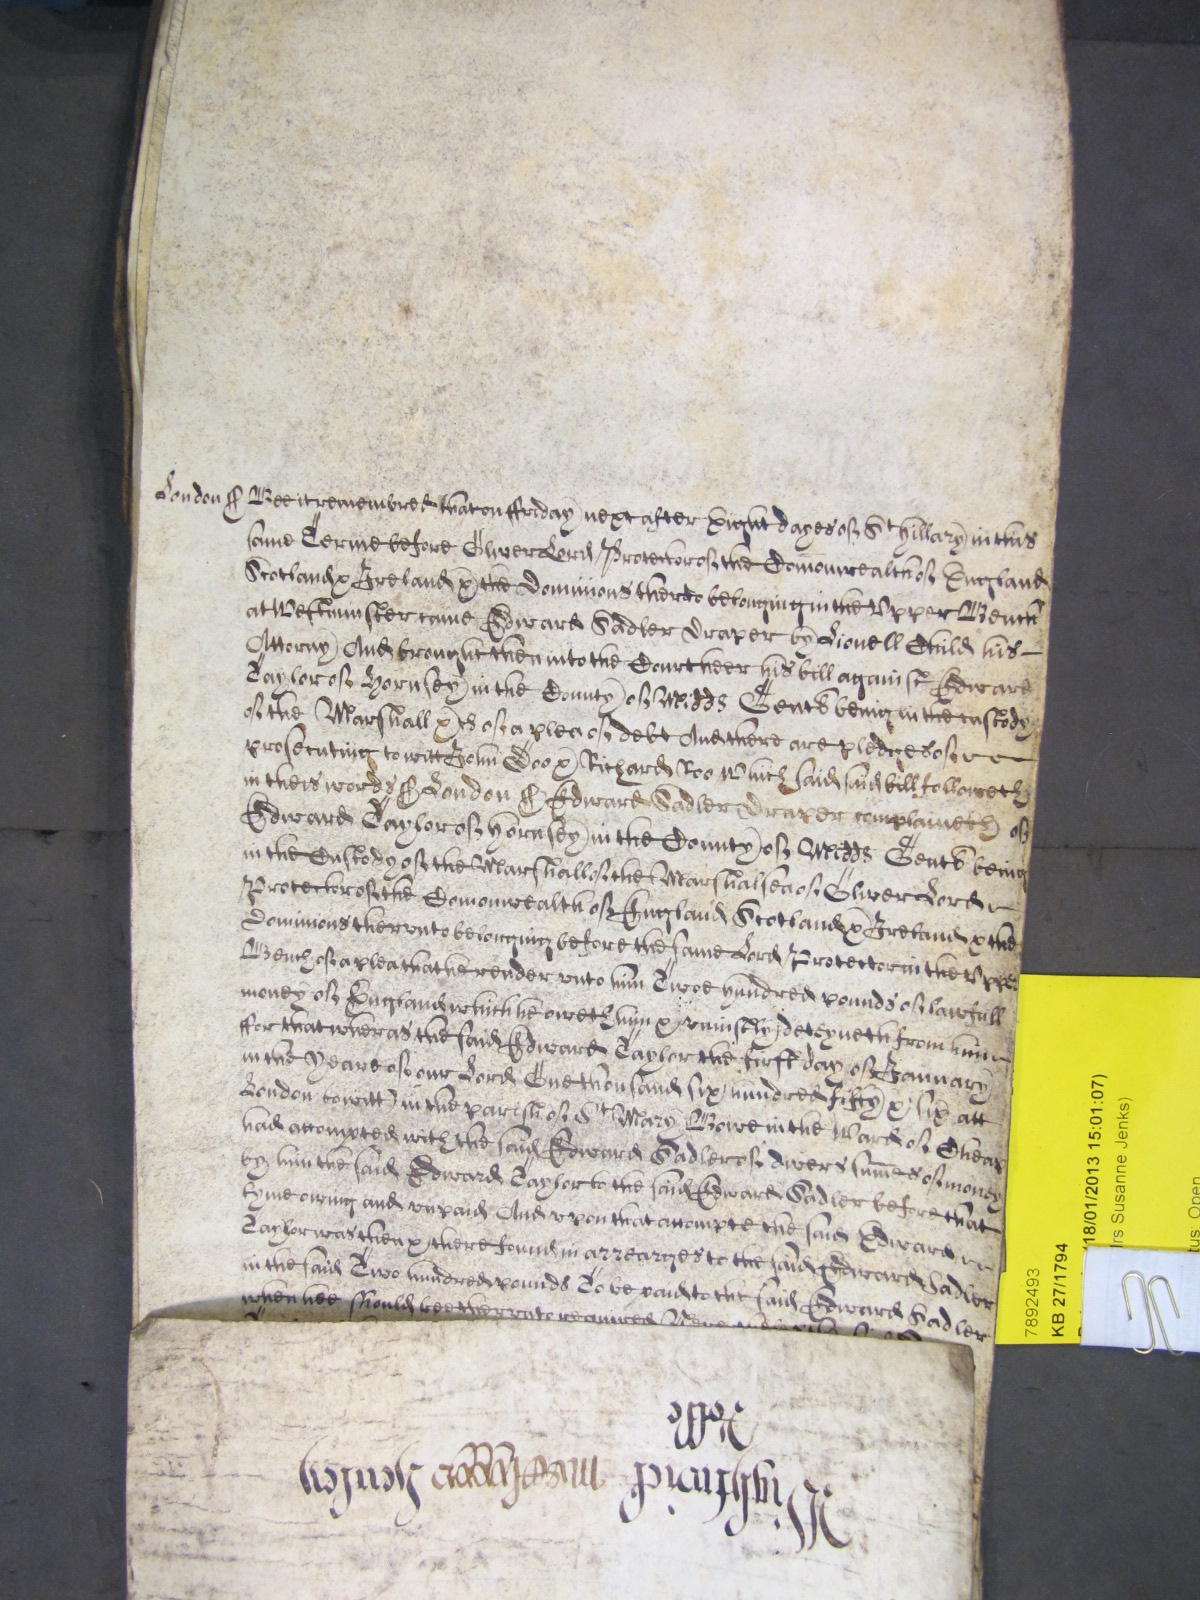 London ss Bee it remembred that on ffriday next after Eight dayes of St hillary in this
same Terme before Oliver Lord Protector of the Comonwealth of England
Scotland & Ireland & the Dominions therto belonging in the Upper Bench
at Westminster came Edward Sadler Draper by Lionell Child his
Attorny And brought then into the Court heer his bill against Edward
Taylor of Hornsey in the County of Midds Gent being in the custody
of the Marshall &c of a plea of debt And there are pledges of
prosecuting to witt John Doo & Richard Roo Which said said bill followeth
in theis words ss London ss Edward Sadler Draper complaineth of
Edward Taylor of Hornsey in the County of Midds Gent being
in the Custody of the Marshall of the Marshalsea of Oliver Lord
Protector of the Comonwealth of England Scotland & Ireland & the
Dominions therunto belonging before the same Lord Protector in the Upper
Bench of a plea that he render unto him Twoe hundred pounds of lawfull
money of England which he oweth him & uniustly deteyneth from him
ffor that wheras the said Edward Taylor the first day of January
in the Yeare of our Lord One thousand six hundred fifty & six att
London to witt in the parish of St Mary Bowe in the Ward of Cheap
had accompted with the said Edward Sadler of divers sumes of money
by him the said Edward Taylor to the said Edward Sadler before that
tyme owing and unpaid And upon that accompte the said Edward
Taylor was then & there found in arrearges to the said Edward Sadler
in the said Two hundred pounds To be paid to the said Edward Sadler
when hee should bee therunto required
7892493
KB 27/1794
18/01/2013 15:01:07)
rs Susanne Jenks)
tus: Open
Rolle